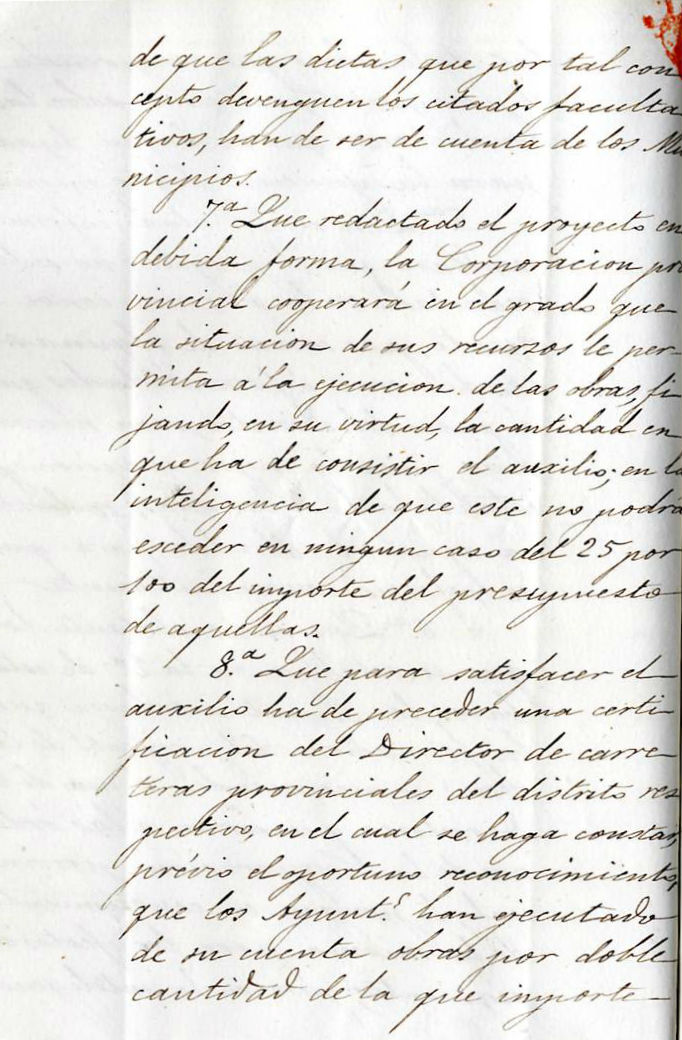 de que las dietas que por tal con
cepto devenguen los citados faculta
tivos, han de ser de cuenta de los Mu
nicipios.
7.ª Que redactado el proyecto en
debida forma, la Corporacion pro
vincial cooperará en el grado que
la situacion de sus recursos le per-
mita á la ejecucion de las obras, fi
jando, en su virtud, la cantidad en
que ha de consistir el auxilio; en la
inteligencia de que este no podrá
esceder en ningun caso del 25 por
100 del importe del presupuesto
de aquellas.
8.ª Que para satisfacer el
auxilio ha de preceder una certi-
ficacion del Director de carre-
teras provinciales del distrito res
pectivo, en el cual se haga constar,
prévio el oportuno reconocimiento,
que los Ayunt.s han ejecutado
de su cuenta obras por doble
cantidad de la que importe-